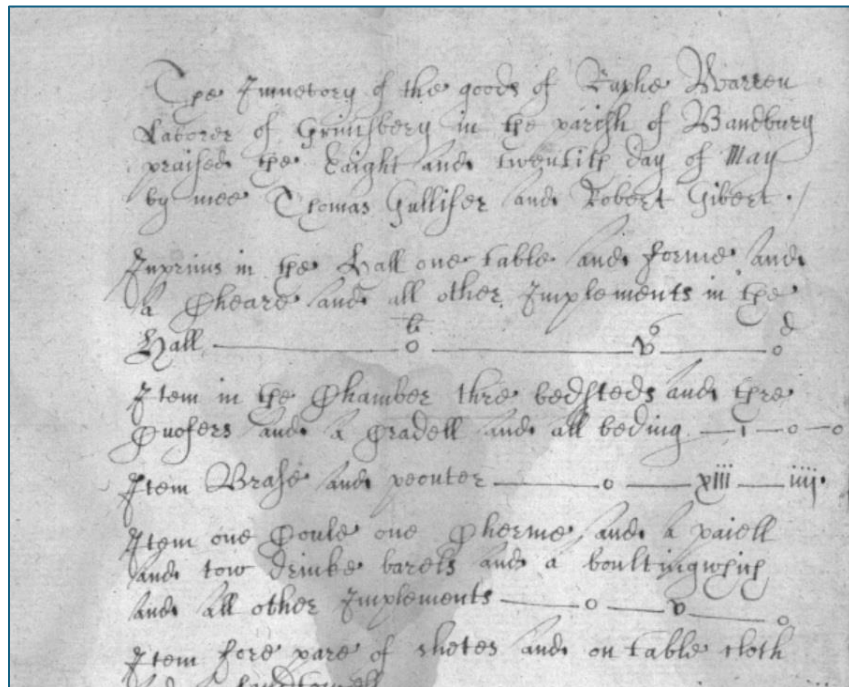 The Inuetory of the goods of Raphe Warren
Laborer of Grimsbery in the parish of Bandbury
praised the Eaight and twentith day of May
by mee Thomas Gulliser and Robert Gibert
Inprimis in the Hall one table and forme and
a Cheare and all other Implements in the
li s d
Hall — o — v — o
Item in the Chamber thre bedsteds and thre
Cuofers and a Cradell and all beding — i — o — o
Item Brase and peouter — o — xiii — iiij
Item one Coule one Cherme and a paiell
and tow drinke barels and a boultingwhich
and all other Implements — o — v — o
Item fore pare of shetes and on table cloth